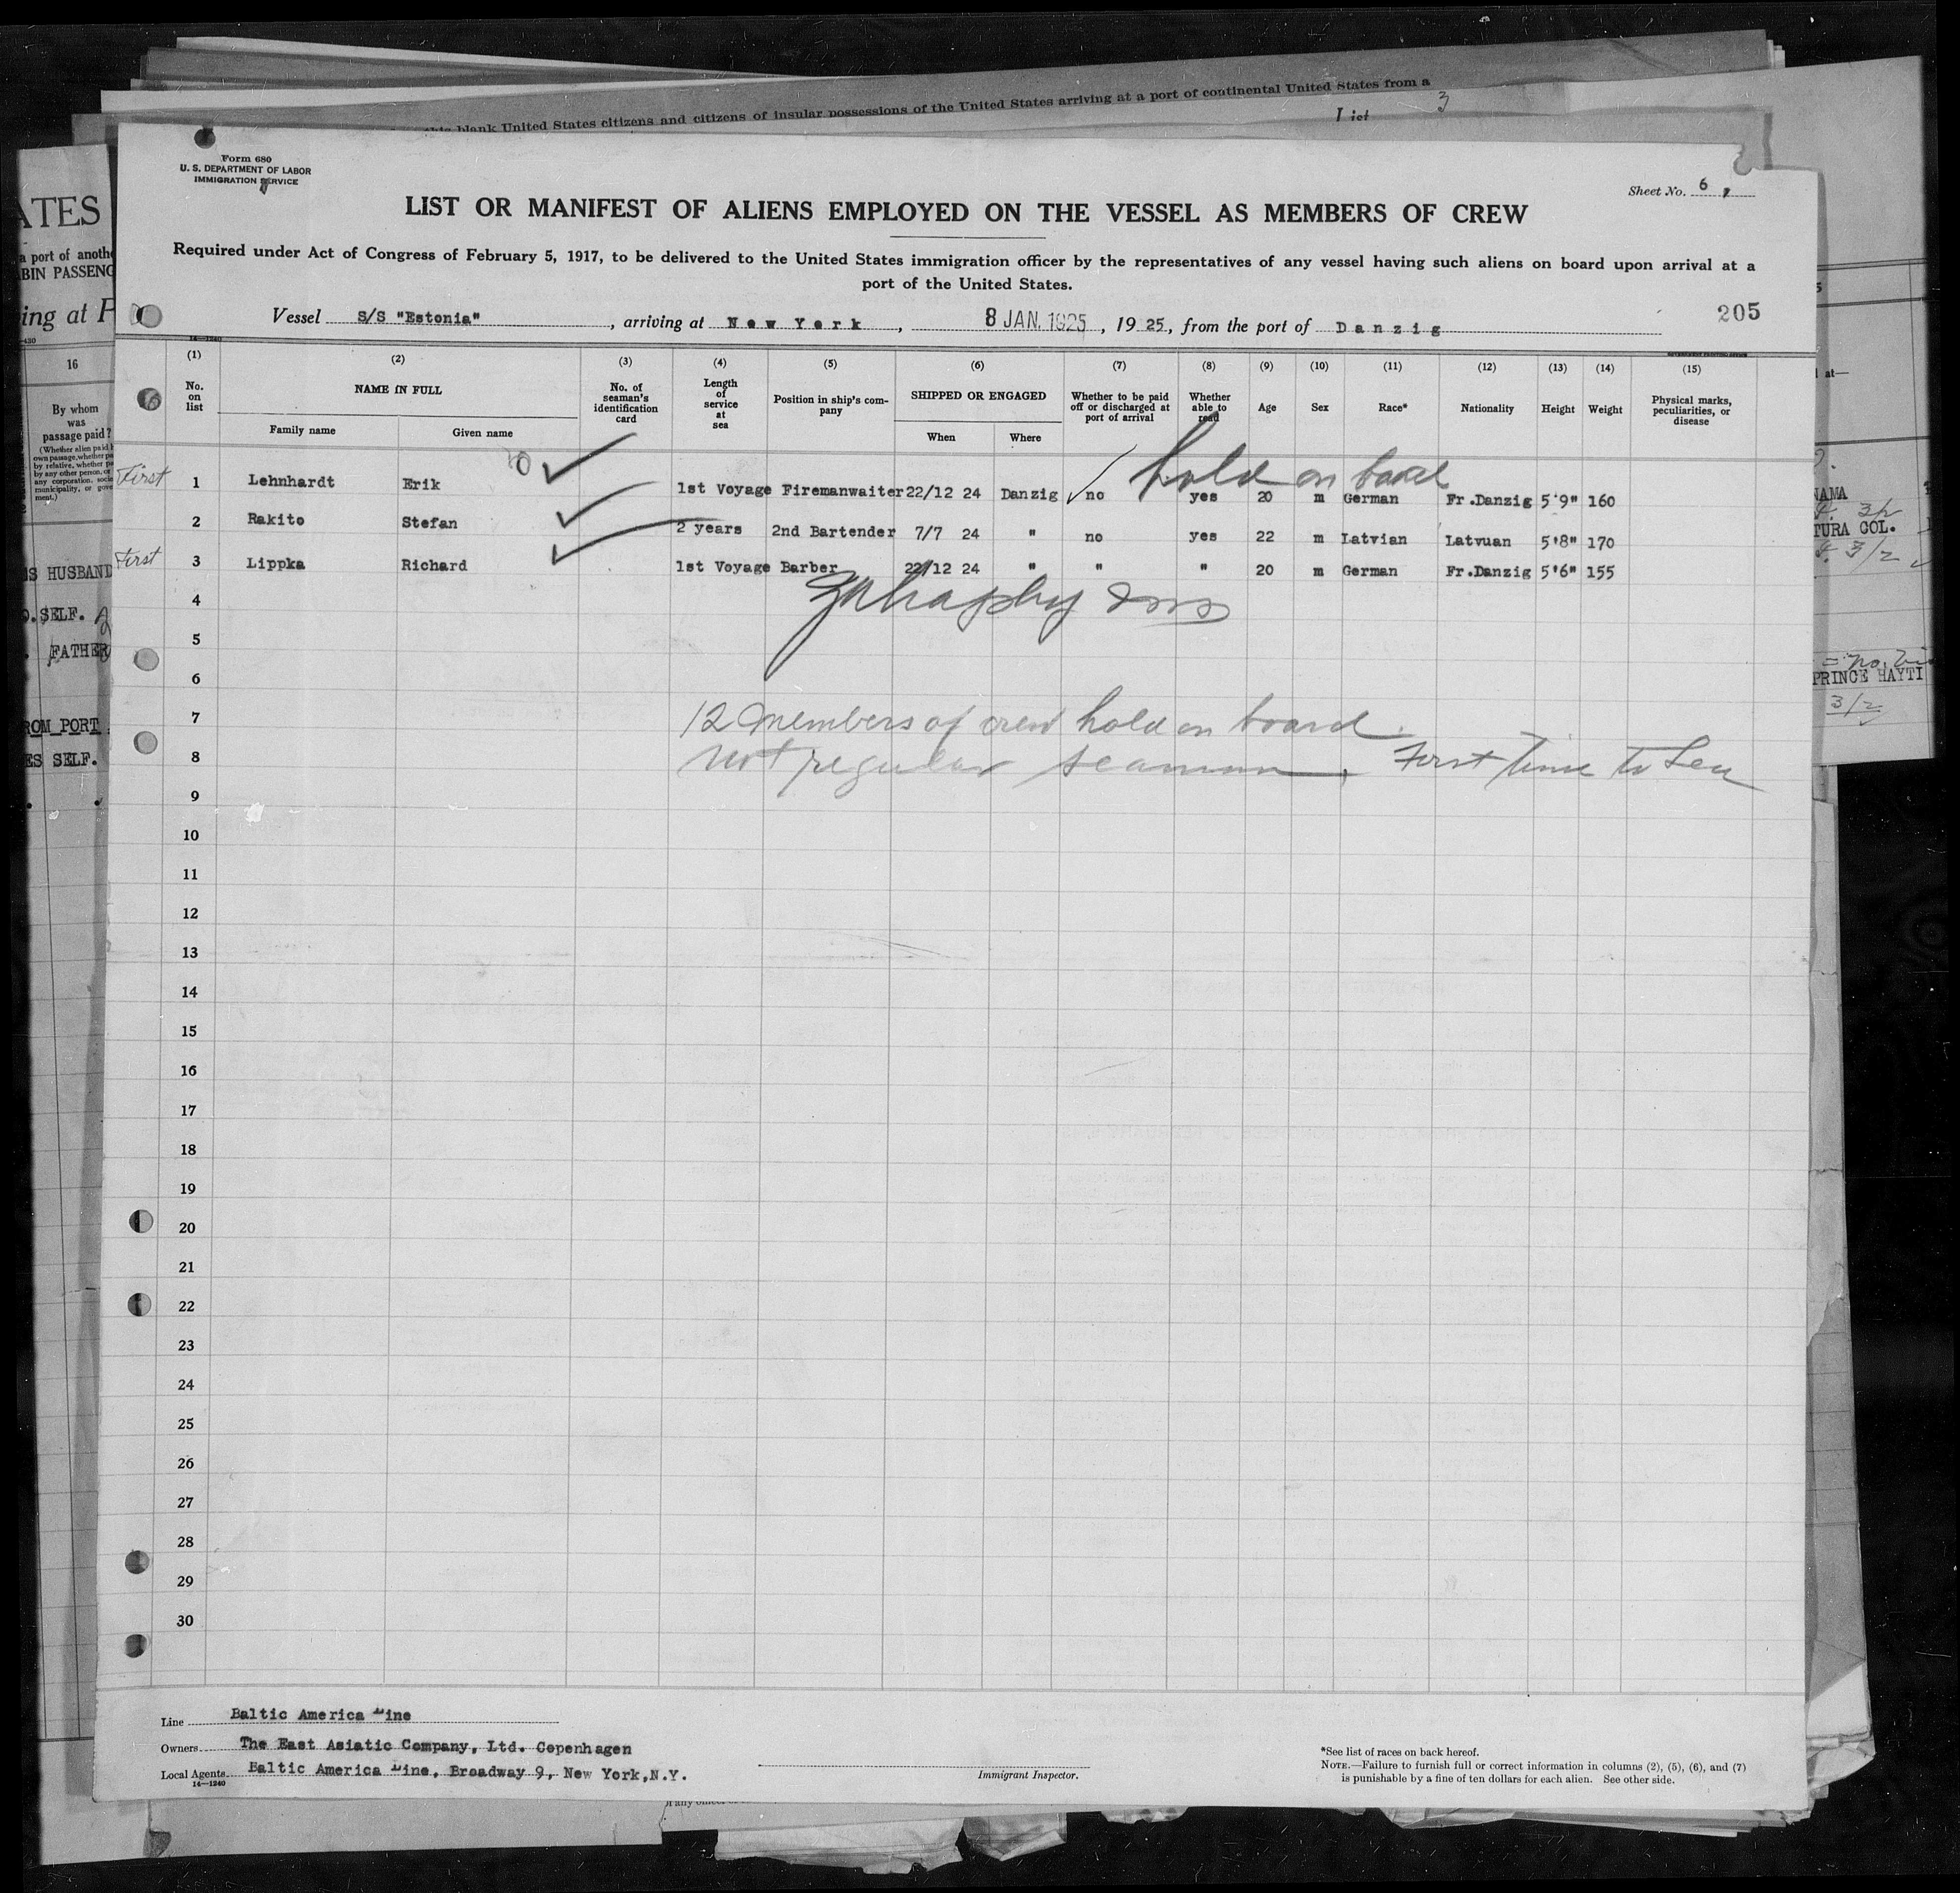 this blank United States citizens and citizens of insular possessions of the United States arriving at a port of continental United States from a
List 3
Form 680
U. S. DEPARTMENT OF LABOR
IMMIGRATION SERVICE
Sheet No. 6
LIST OR MANIFEST OF ALIENS EMPLOYED ON THE VESSEL AS MEMBERS OF CREW
Required under Act of Congress of February 5, 1917, to be delivered to the United States immigration officer by the representatives of any vessel having such aliens on board upon arrival at a
port of the United States.
Vessel S/S "Estonia", arriving at New York, 8 JAN. 1925, 1925, from the port of Danzig
205
14—1240
(1) (2) (3) (4) (5) (6) (7) (8) (9) (10) (11) (12) (13) (14) (15)
No. on list NAME IN FULL No. of seaman's identification card Length of service at sea Position in ship's company SHIPPED OR ENGAGED Whether to be paid off or discharged at port of arrival Whether able to read Age Sex Race* Nationality Height Weight Physical marks, peculiarities, or disease
Family name Given name When Where
hold on board
First 1 Lehnhardt Erik 1st Voyage Firemanwaiter 22/12 24 Danzig no yes 20 m German Fr.Danzig 5'9" 160
2 Rakito Stefan 2 years 2nd Bartender 7/7 24 " no yes 22 m Latvian Latvuan 5'8" 170
First 3 Lippka Richard 1st Voyage Barber 22/12 24 " " " 20 m German Fr.Danzig 5'6" 155
4
5
6
7 12 members of crew hold on board
8 not regular seaman, First time to Sea
9
10
11
12
13
14
15
16
17
18
19
20
21
22
23
24
25
26
27
28
29
30
Line Baltic America Line
Owners The East Asiatic Company, Ltd. Copenhagen
Local Agents Baltic America Line, Broadway 9, New York,N.Y.
14—1240
Immigrant Inspector.
*See list of races on back hereof.
NOTE.—Failure to furnish full or correct information in columns (2), (5), (6), and (7)
is punishable by a fine of ten dollars for each alien. See other side.
ATES
a port of anoth
BIN PASSENG
ing at
16
By whom
was
passage paid?
HUSBAND
SELF.
FATHER
ROM PORT
ES SELF.
at—
NAMA
TURA COL.
3/2
PRINCE HAYTI
3/2